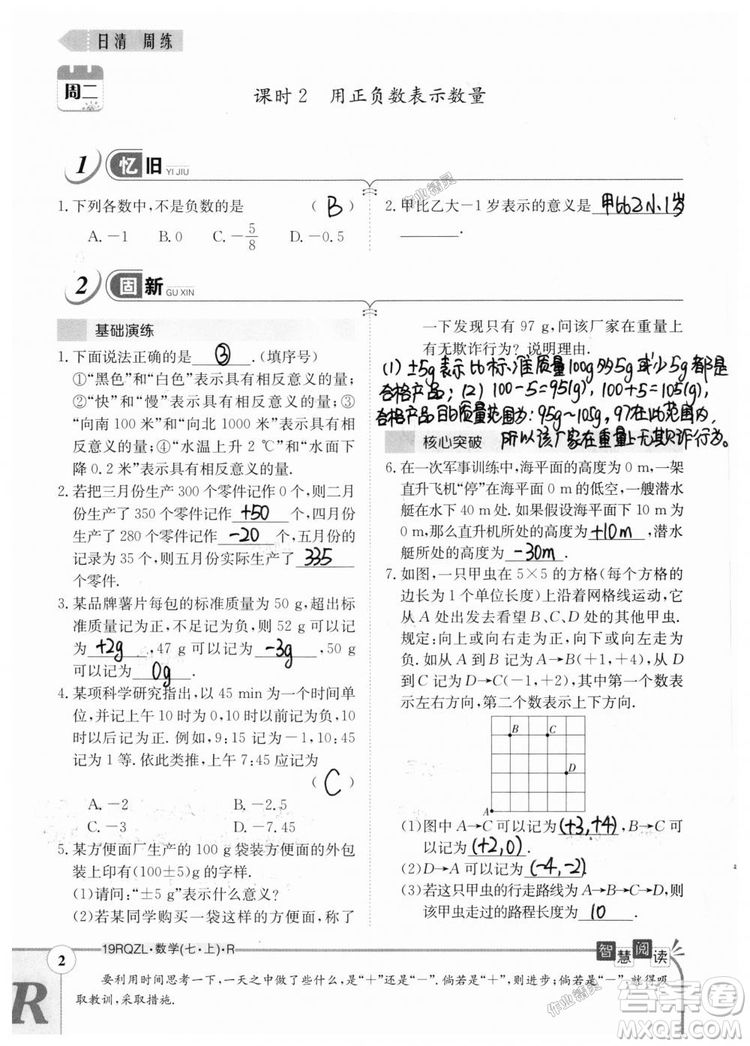 日清 周练
周二
课时2 用正负数表示数量
1 忆旧 YI JIU
1.下列各数中,不是负数的是 ( B )
A.-1 B.0 C.-5/8 D.-0.5
2.甲比乙大-1岁表示的意义是 甲比乙小1岁
________.
2 固新 GU XIN
基础演练
1.下面说法正确的是 ③ .(填序号)
①“黑色”和“白色”表示具有相反意义的量;②“快”和“慢”表示具有相反意义的量;③
“向南100米”和“向北1000米”表示具有相
反意义的量;④“水温上升2 ℃”和“水面下
降0.2米”表示具有相反意义的量.
2.若把三月份生产300个零件记作0个,则二月
份生产了350个零件记作 +50 个,四月份
生产了280个零件记作 -20 个,五月份的
记录为35个,则五月份实际生产了 335
个零件.
3.某品牌薯片每包的标准质量为50 g,超出标准
质量记为正,不足记为负,则52 g可以记
为 +2g ,47 g可以记为 -3g ,50 g可以
记为 0g .
4.某项科学研究指出,以45 min为一个时间单
位,并记上午10时为0,10时以前记为负,10
时以后记为正.例如,上午9:15记为-1,10:45
记为1等.依此类推,上午7:45应记为
( C )
A.-2 B.-2.5
C.-3 D.-7.45
5.某方便面厂生产的100 g袋装方便面的外包
装上印有(100±5)g的字样.
(1)请问:“±5 g”表示什么意义?
(2)若某同学购买一袋这样的方便面,称了
一下发现只有97 g,问该厂家在重量上
有无欺诈行为?说明理由.
(1)±5g表示比标准质量100g多5g或少5g都是
合格产品;(2)100-5=95(g),100+5=105(g),
合格产品的质量范围为:95g~105g,97在此范围内
所以该厂家在重量上无欺诈行为。
核心突破
6.在一次军事训练中,海平面的高度为0 m,一架
直升飞机“停”在海平面的低空,一艘潜水
艇在水下40 m处.如果假设海平面的高度为
0 m,那么直升机所处的高度为 +10m ,潜水
艇所处的高度为 -30m .
7.如图,一只甲虫在5×5的方格(每个方格的
边长为1个单位长度)上沿着网格线运动,它
从A处出发去看望B、C、D处的其他甲虫.
规定:向上向右走为正,向下向左走为负.如
果从A到B记为A→B(+1,+4),从D到C
记为D→C(-1,+2),其中第一个数表示
左右方向,第二个数表示上下方向.
B C
D
A
(1)图中A→C可以记为 (+3,+4) ,B→C可
以记为 (+2,0) .
(2)D→A可以记为 (-4,-2) .
(3)若这只甲虫的行走路线为A→B→C→D,则
该甲虫走过的路程长度为 10 .
2
19RQZL·数学(七·上)·R
智慧阅读
要利用时间思考一下,一天之中做了些什么,是“+”还是“-”.倘若是“+”,则进步;倘若是“-”,就得吸
取教训,采取措施.
R
作业精灵
答案圈
MXQE.COM